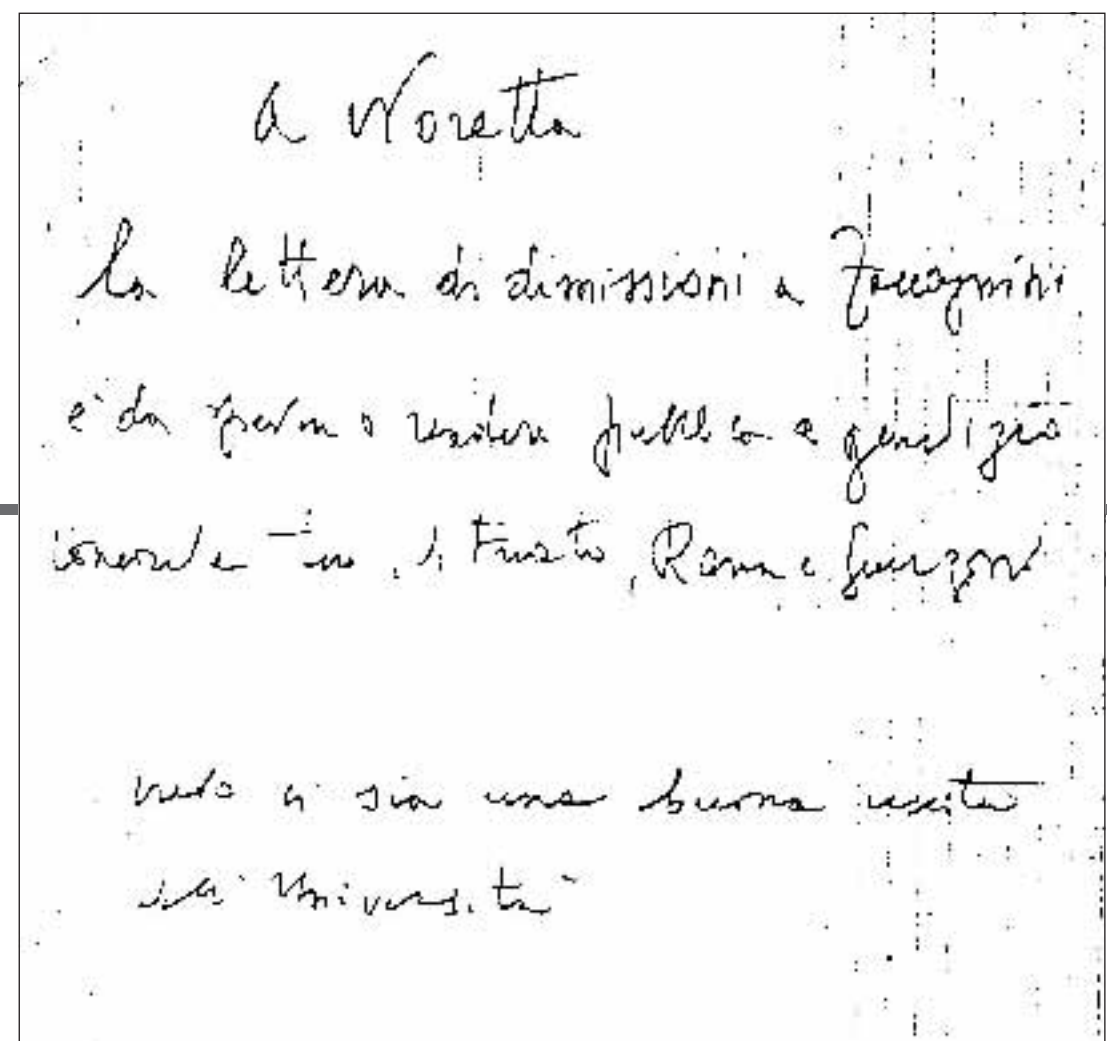 a Noretta
La lettera di dimissioni a Zaccagnini
è da rendere pubblica a giudizio
concorde tuo, di Freato, Rana e Guerzoni
vedo ci sia una buona uscita
all'Università